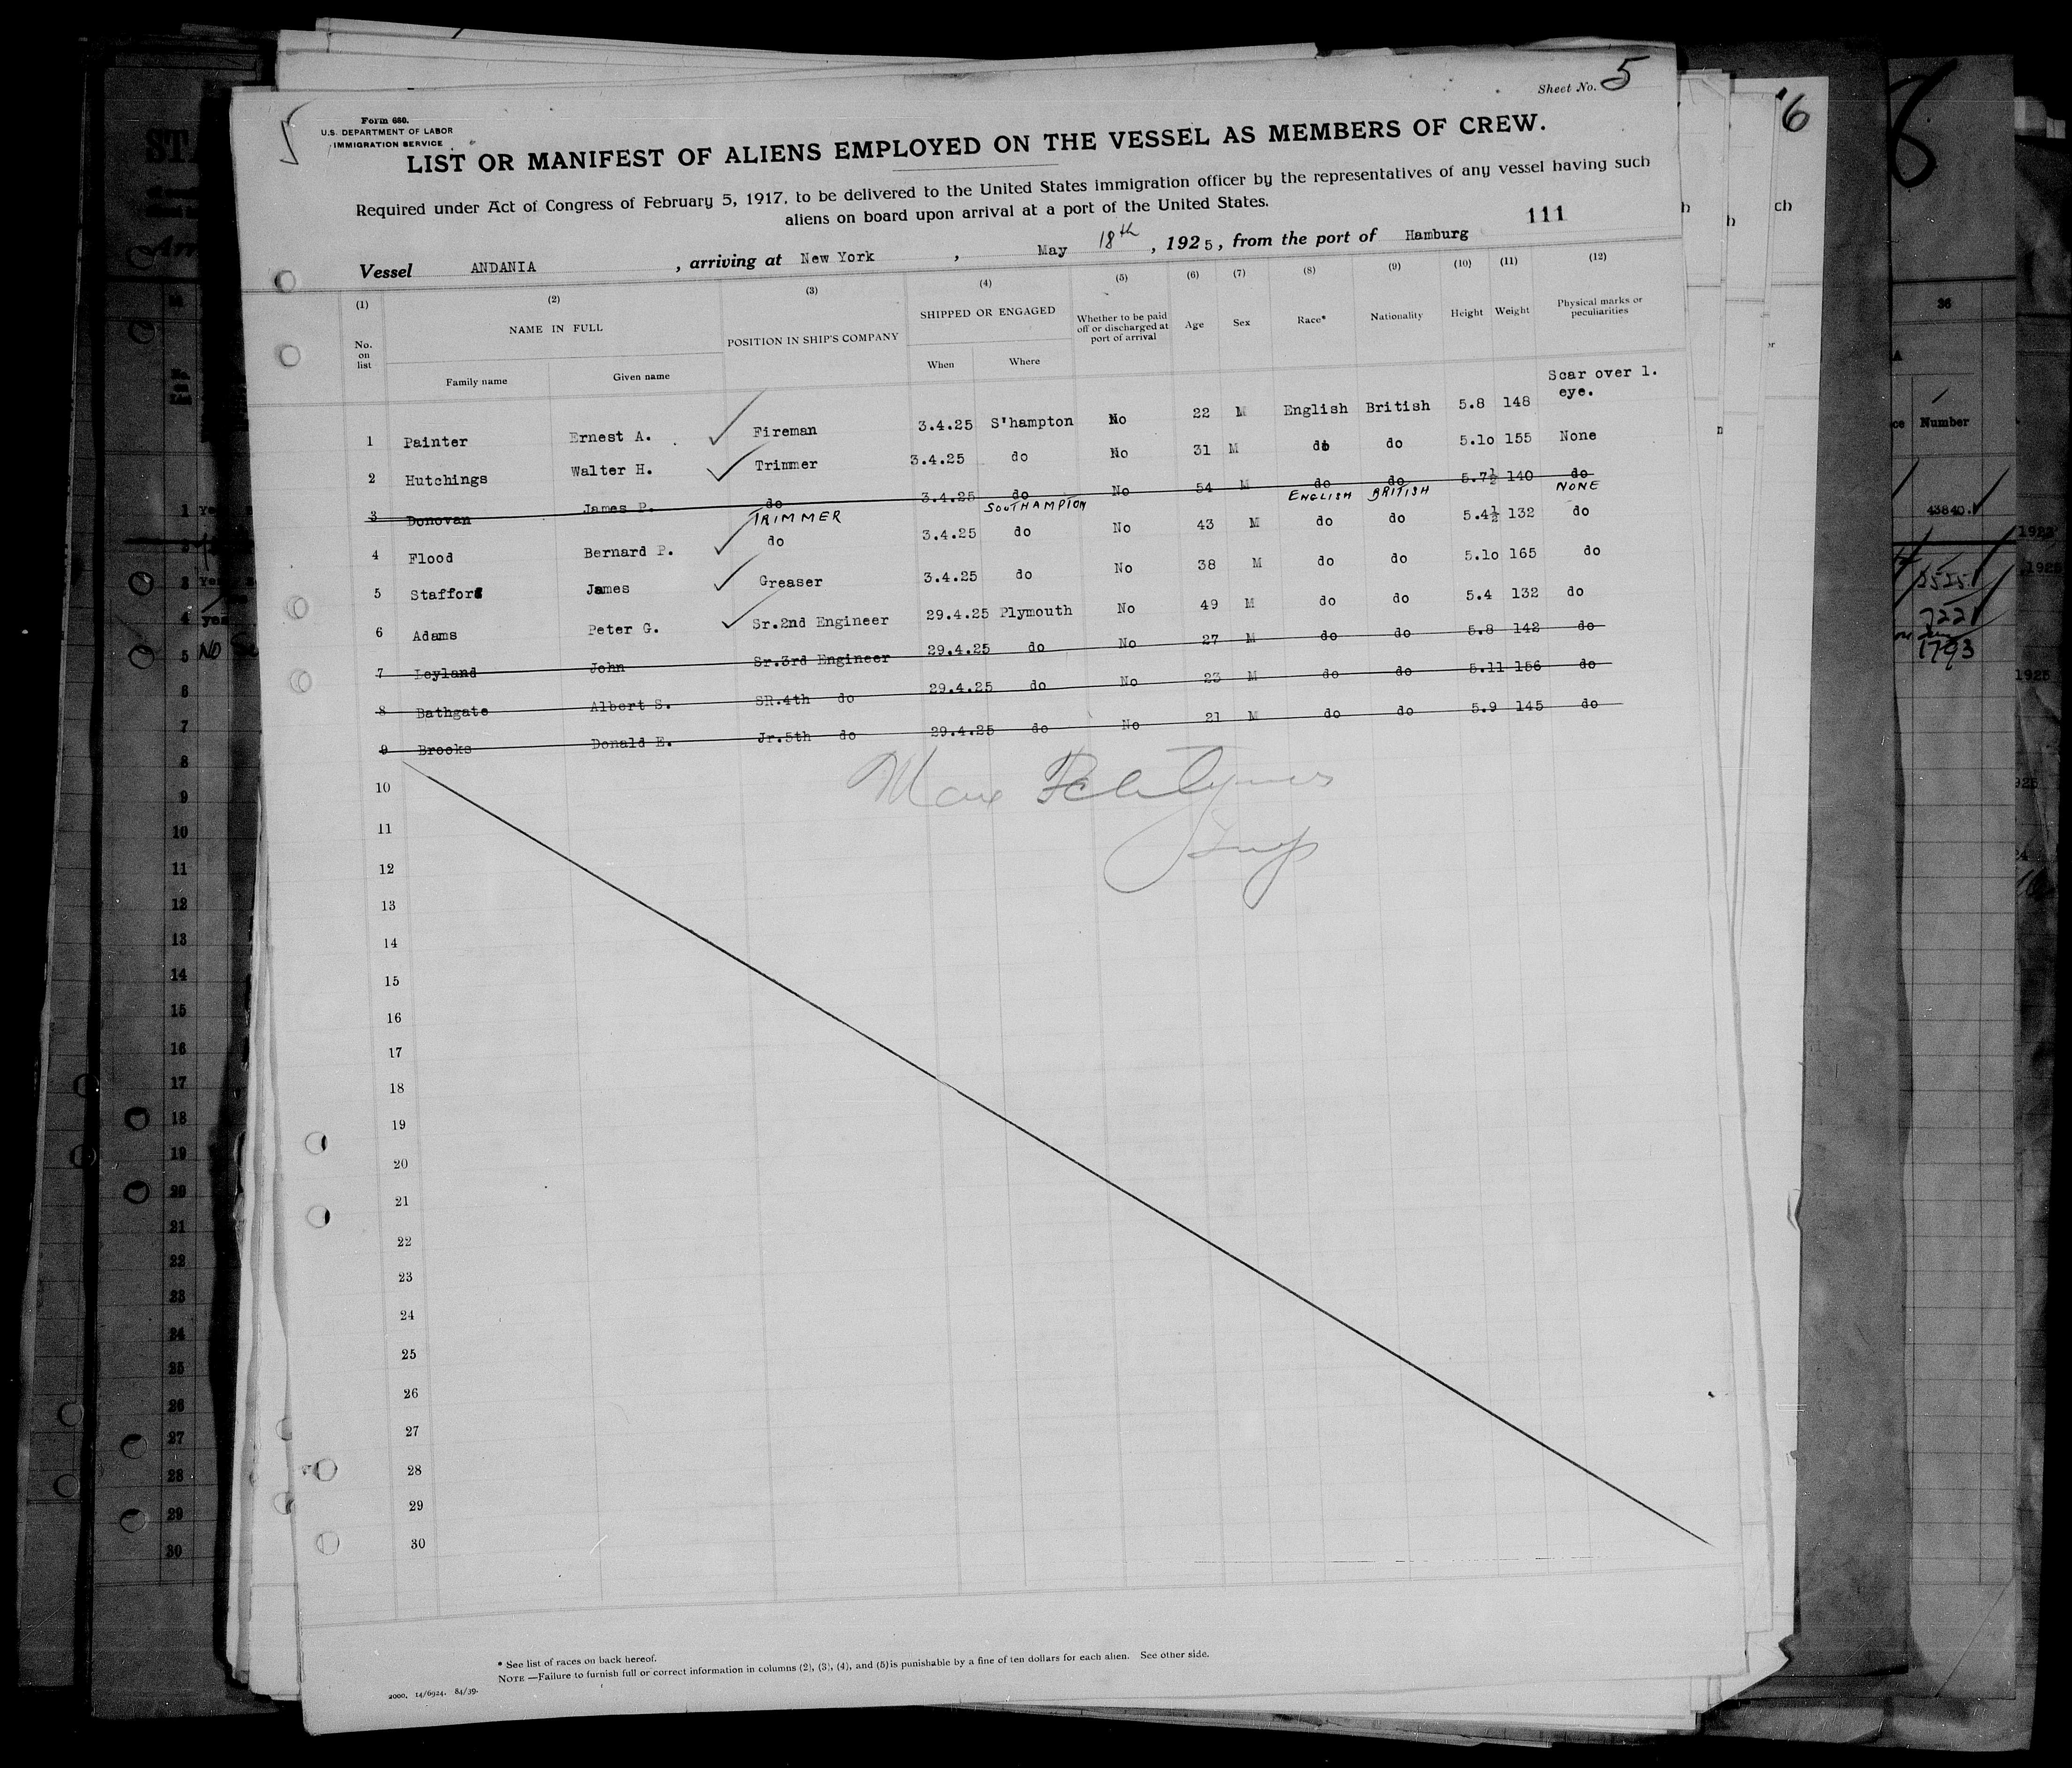 Sheet No. 5
Form 680.
U.S. DEPARTMENT OF LABOR
IMMIGRATION SERVICE
LIST OR MANIFEST OF ALIENS EMPLOYED ON THE VESSEL AS MEMBERS OF CREW.
Required under Act of Congress of February 5, 1917, to be delivered to the United States immigration officer by the representatives of any vessel having such
aliens on board upon arrival at a port of the United States.
111
Vessel ANDANIA, arriving at New York, May 18th, 1925, from the port of Hamburg
(1) (2) (3) (4) (5) (6) (7) (8) (9) (10) (11) (12)
No. on list NAME IN FULL POSITION IN SHIP'S COMPANY SHIPPED OR ENGAGED Whether to be paid off or discharged at port of arrival Age Sex Race* Nationality Height Weight Physical marks or peculiarities
Family name Given name When Where
1 Painter Ernest A. Fireman 3.4.25 S'hampton No 22 M English British 5.8 148 Scar over l. eye.
2 Hutchings Walter H. Trimmer 3.4.25 do No 31 M do do 5.10 155 None
3 Donovan James P. do 3.4.25 do No 54 M do do 5.7½ 140 do
TRIMMER SOUTHAMPTON ENGLISH BRITISH NONE
4 Flood Bernard P. do 3.4.25 do No 43 M do do 5.4½ 132 do
5 Stafford James Greaser 3.4.25 do No 38 M do do 5.10 165 do
6 Adams Peter G. Sr.2nd Engineer 29.4.25 Plymouth No 49 M do do 5.4 132 do
7 Leyland John Sr.3rd Engineer 29.4.25 do No 27 M do do 5.8 142 do
8 Bathgate Albert S. SR.4th do 29.4.25 do No 23 M do do 5.11 156 do
9 Brooks Donald E. Jr.5th do 29.4.25 do No 21 M do do 5.9 145 do
10
11
12
13
14
15
16
17
18
19
20
21
22
23
24
25
26
27
28
29
30
* See list of races on back hereof.
NOTE.—Failure to furnish full or correct information in columns (2), (3), (4), and (5) is punishable by a fine of ten dollars for each alien. See other side.
2000. 14/6924. 84/39.
6
8
36
Number
43840
1793